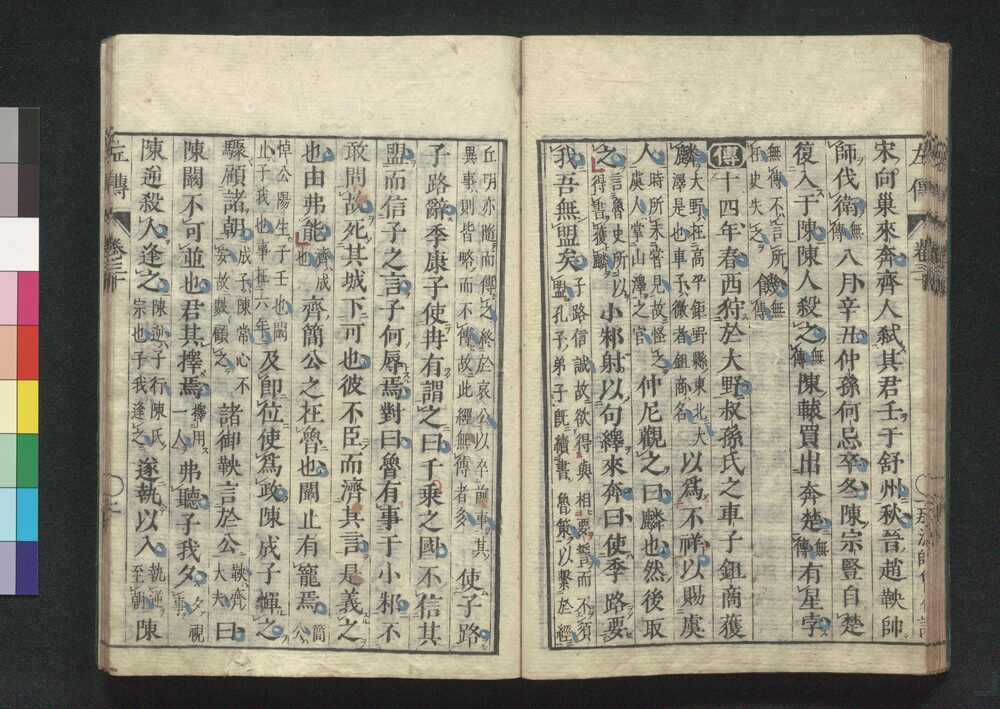 宋向巢來奔齊人弑其君壬于舒州秋晉趙鞅帥
師伐衛無傳八月辛丑仲孫何忌卒冬陳宗豎自楚
復入于陳陳人殺之無傳陳轅買出奔楚無傳有星孛
無傳不言所在史失之饑無傳
傳十四年春西狩於大野叔孫氏之車子鉏商獲
麟大野在高平鉅野縣東北大澤是也車子微者鉏商名以為不祥以賜虞
人時所未嘗見故怪之虞人掌山澤之官仲尼觀之曰麟也然後取
之言魯史所以得書獲麟小邾射以句繹來奔曰使季路要
我吾無盟矣子路信誠故欲得與相要誓而不須盟孔子弟子既續書魯策以繫於經
丘明亦隨而傳之終於哀公以卒前事其異事則皆略而不傳故此經無傳者多使子路
子路辭季康子使冉有謂之曰千乘之國不信其
盟而信子之言子何辱焉對曰魯有事于小邾不
敢問故死其城下可也彼不臣而濟其言是義之
也由弗能濟成也齊簡公之在魯也闞止有寵焉簡公
悼公陽生子壬也闞止子我也事在六年及即位使為政陳成子憚之
驟顧諸朝成子陳常心不安故數顧之諸御鞅言於公鞅齊大夫曰
陳闞不可並也君其擇焉擇用一人弗聽子我夕夕視事
陳逆殺人逢之陳逆子行陳氏宗也子我逢之遂執以入執逆至朝陳
左傳
卷三十
左傳
卷三十